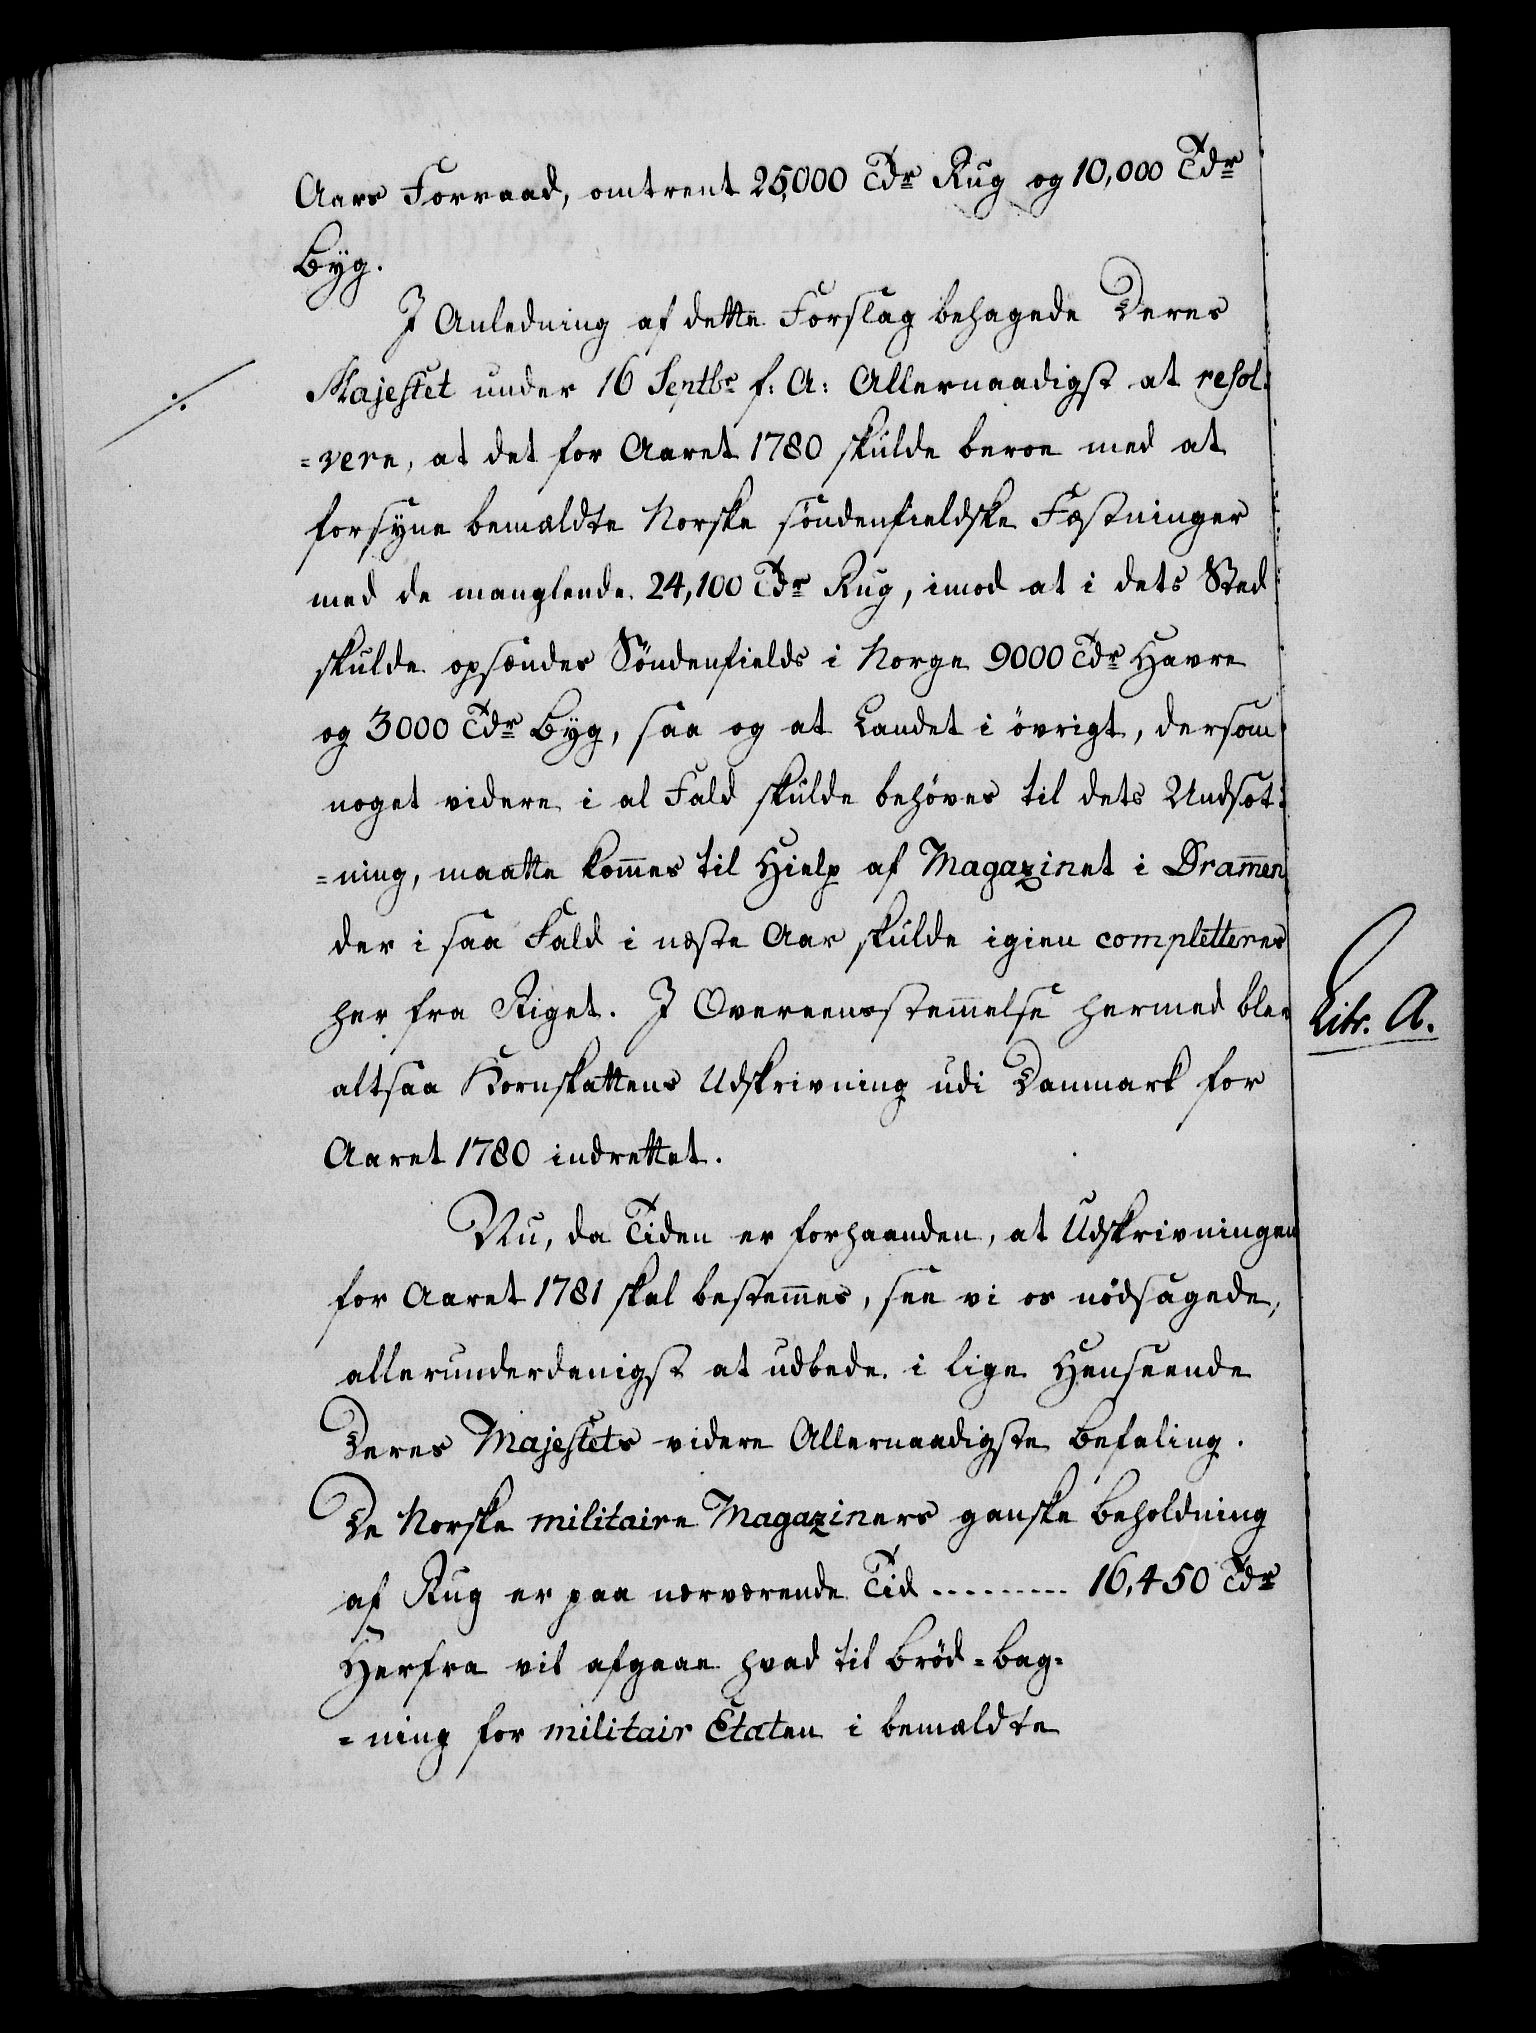 Aars Forraad, omtrent 25,000 Tdr Rug og 10,000 Tdr
Byg.
I Anledning af dette Forslag behagede Deres
Majestet under 16 Septbr f: A: Allernaadigst at resol-
=vere, at det for Aaret 1780 skulde beroe med at
forsyne bemældte Norske söndenfieldske Fæstninger
med de manglende 24,100 Tdr Rug, imod at i dets Sted
skulde opsendes Söndenfields i Norge 9000 Tdr Havre
og 3000 Tdr Byg, saa og at Landet i övrigt, dersom
noget videre i al Fald skulde behöves til dets Undsæt-
=ning, maatte kom̄es til Hielp af Magazinet i Dram̄en
der i saa Fald i næste Aar skulde igien completteres
her fra Riget. I Overeensstem̄else hermed blev
altsaa Kornskattens Udskrivning udi Danmark for
Aaret 1780 indrettet.
Litr. A.
Nu, da Tiden er forhaanden, at Udskrivningen
for Aaret 1781 skal bestem̄es, see vi os nödsagede,
allerunderdanigst at udbede i lige Henseende
Deres Majestets videre Allernaadigste Befaling.
De Norske militaire Magaziners ganske Beholdning
af Rug er paa nærværende Tid ......... 16,450 Tdr
Herfra vil afgaae hvad til Bröd=bag=
=ning for militair Etaten i bemældte